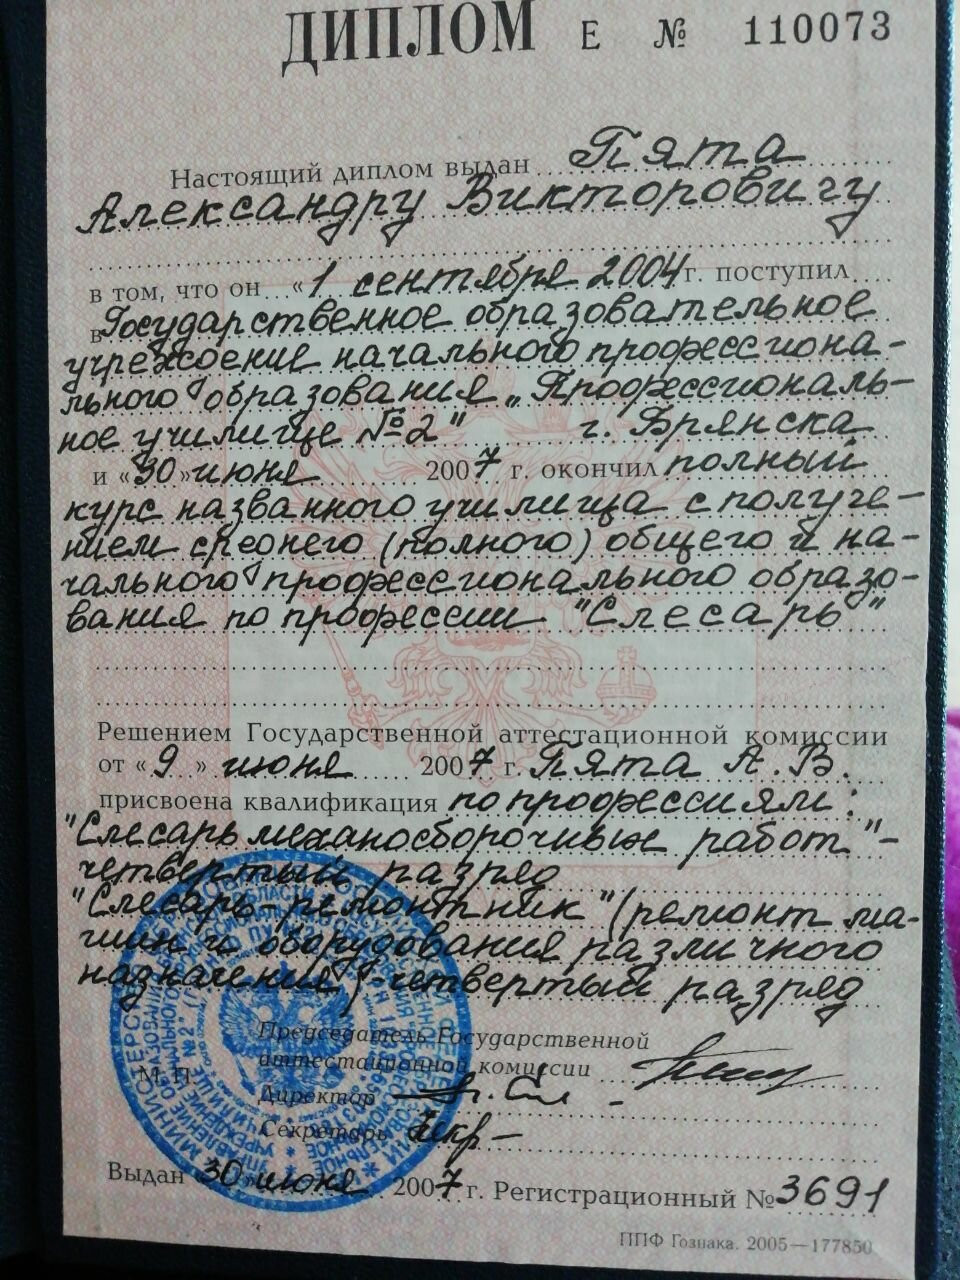 ДИПЛОМ Е № 110073
Настоящий диплом выдан Пята
Александру Викторовичу
в том, что он «1 сентября 2004 г. поступил
в Государственное образовательное
учреждение начального профессиона-
льного образования „Профессиональ-
ное училище №2" г. Брянска
и «30» июня 2007 г. окончил полный
курс названного училища с получе-
нием среднего (полного) общего и на-
чального профессионального образо-
вания по профессии "Слесарь"
Решением Государственной аттестационной комиссии
от «9» июня 2007 г. Пята А.В.
присвоена квалификация по профессиям:
"Слесарь механосборочных работ"-
четвертый разряд
"Слесарь-ремонтник" (ремонт ма-
шин и оборудования различного
назначения)-четвертый разряд
Председатель Государственной
аттестационной комиссии
М.П.
Директор
Секретарь
Выдан 30 июня 2007 г. Регистрационный № 3691
ППФ Гознака. 2005—177850